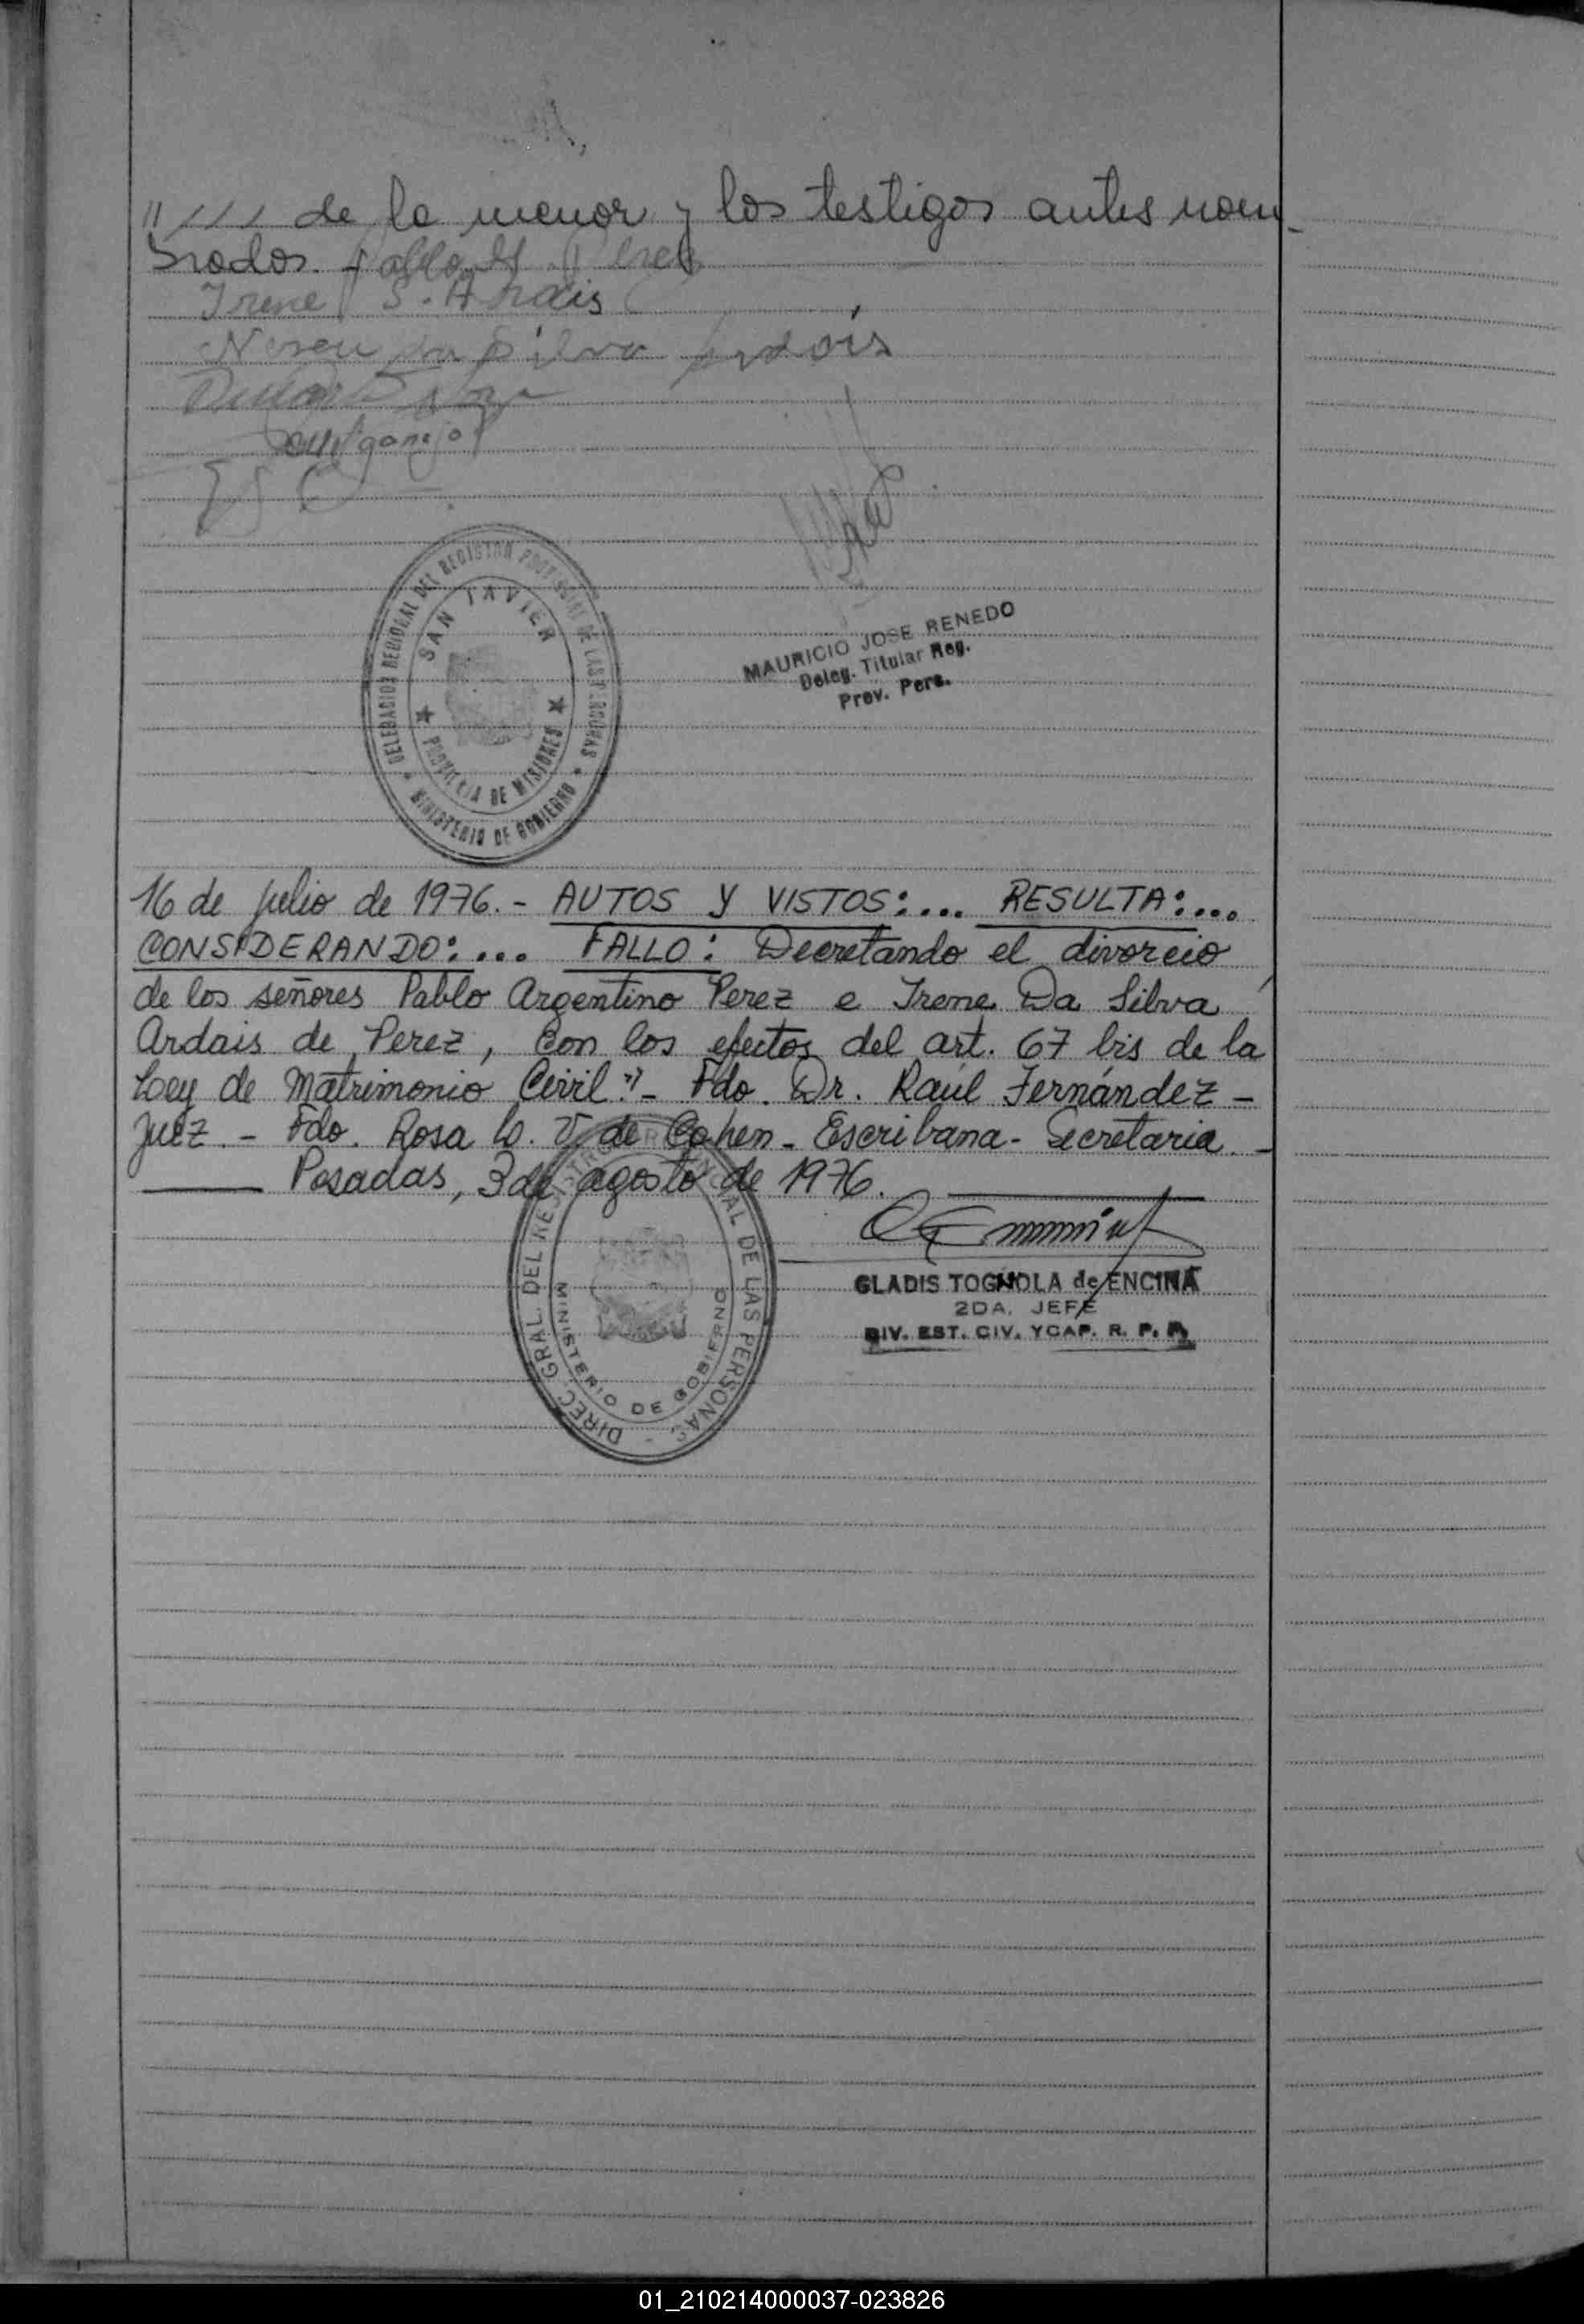 " /// de la menor y los testigos antes nom-
brados. Pablo A. Perez
Irene S. Ardais
Nereu da Silva Ardais
DELEGACION REGIONAL DEL REGISTRO PROVINCIAL DE LAS PERSONAS
SAN JAVIER
★ PROVINCIA DE MISIONES ★
* MINISTERIO DE GOBIERNO *
MAURICIO JOSE RENEDO
Deleg. Titular Reg.
Prov. Pers.
16 de julio de 1976.- AUTOS Y VISTOS:... RESULTA:...
CONSIDERANDO:... FALLO: Decretando el divorcio
de los señores Pablo Argentino Perez e Irene Da Silva
Ardais de Perez, con los efectos del art. 67 bis de la
Ley de Matrimonio Civil."- Fdo. Dr. Raúl Fernández -
Juez.- Fdo. Rosa W. V. de Cohen - Escribana - Secretaria.-
Posadas, 3 de agosto de 1976.
DIREC. GRAL. DEL REGISTRO PROVINCIAL DE LAS PERSONAS -
MINISTERIO DE GOBIERNO
GLADIS TOGNOLA de ENCINA
2DA. JEFE
DIV. EST. CIV. YCAP. R. P. P.
01_210214000037-023826